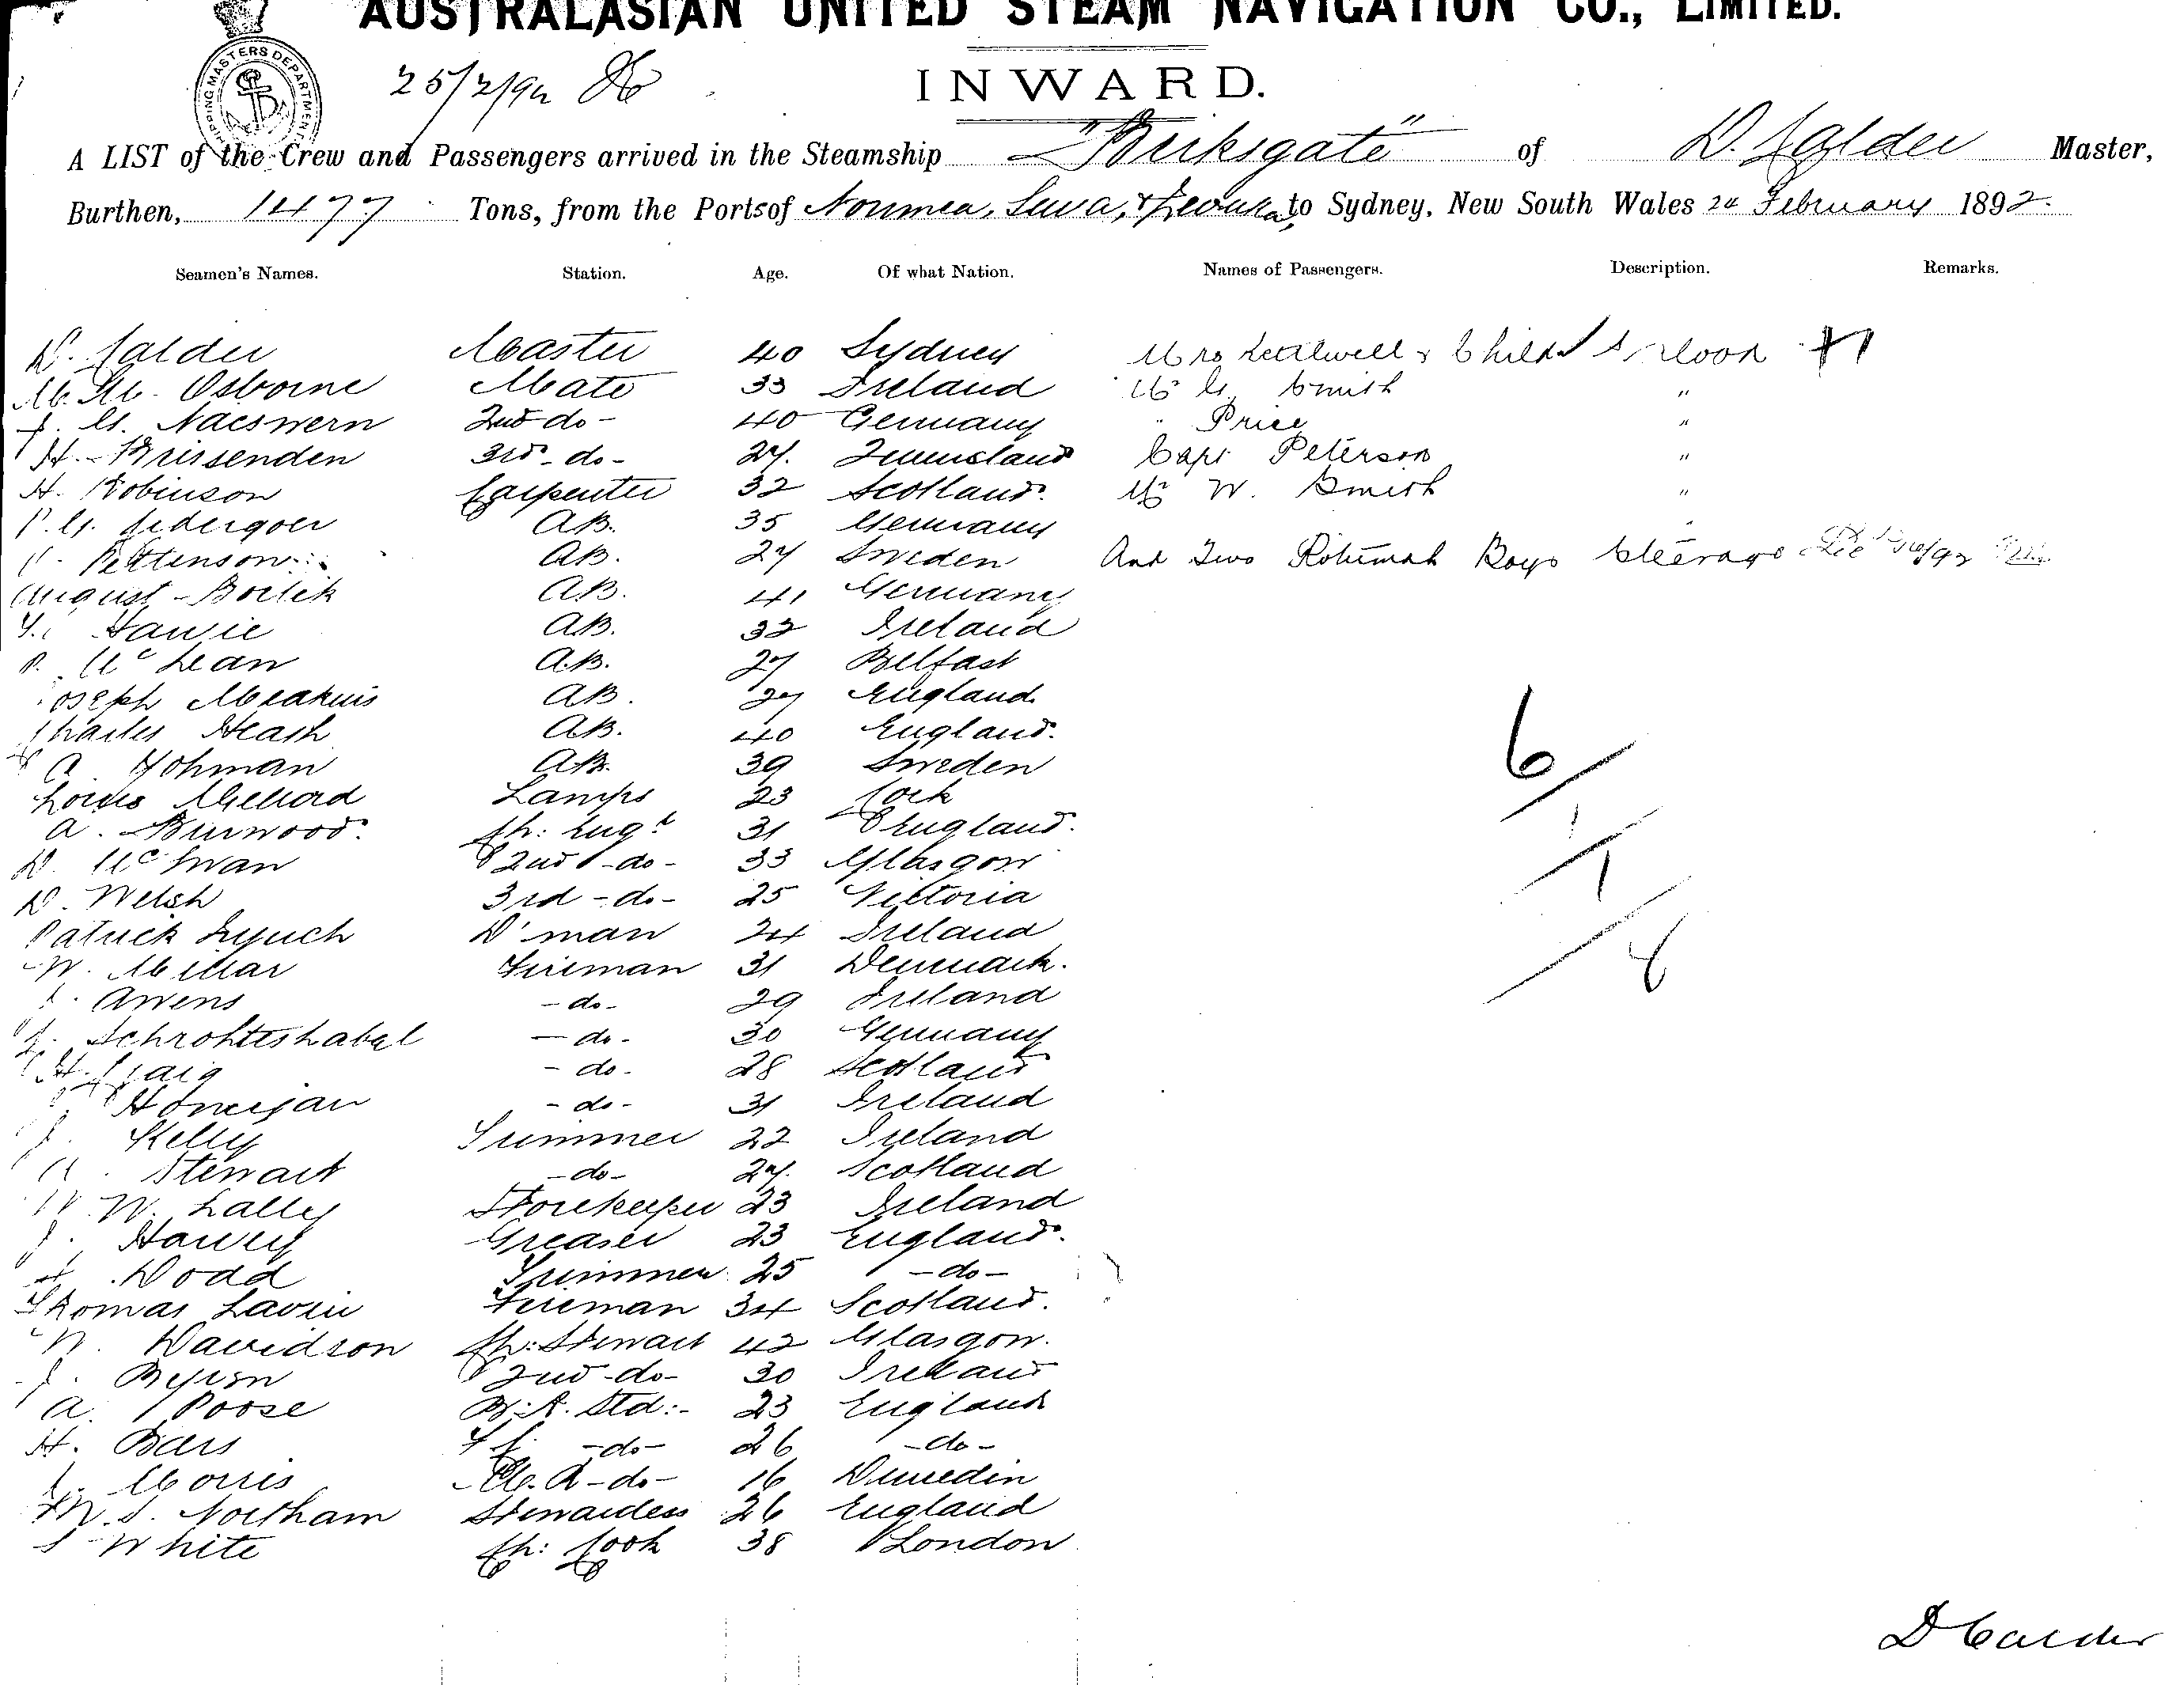 AUSTRALASIAN UNITED STEAM NAVIGATION CO., LIMITED.
SHIPPING MASTERS DEPARTMENT
25/2/92
INWARD.
A LIST of the Crew and Passengers arrived in the Steamship "Birksgate" of D. Calder Master,
Burthen, 1477 Tons, from the Ports of Noumea, Suva, & Levuka to Sydney, New South Wales 24 February 1892.
Seamen's Names. Station. Age. Of what Nation. Names of Passengers. Description. Remarks.
D. Calder Master 40 Sydney Mrs & Child Saloon
Osborne Mate 33 Ireland Mr G. Smith "
2nd do - 40 Germany " Price "
H. Brissenden 3rd - do - 27. Queensland Capt Peterson "
H. Robinson Carpenter 32 Scotland. Mr W. Smith "
AB. 35 Germany
Pettenson AB. 27 Sweden And Two Rotumah Boys Steerage
August AB. 41 Germany
AB. 32 Ireland
McLean A.B. 27 Belfast
Joseph Meakins AB. 27 England
Charles Heash AB. 40 England.
A. Yohman AB. 39 Sweden
Louis Lamps 23 Cork
A. Burwood. Ch: Engr 31 England.
D. McSwan 2nd - do - 33 Glasgow
D. Welsh 3rd - do - 25 Victoria
Patrick Lynch D'man 24 Ireland
W. Millar Fireman 31 Denmark.
Owens - do - 29 Ireland
Schrohteshabel - do - 30 Germany
H. Craig - do - 28 Scotland
- do - 31 Ireland
J. Kelly Trimmer 22 Ireland
A. Stewart - do - 27. Scotland
W. Lally Storekeeper 23 Ireland
J. Harvey Greaser 23 England.
Dodd Trimmer 25 - do -
Thomas Lavin Fireman 34 Scotland.
W. Davidson Ch: Stewart 42 Glasgow.
J. Byron 2nd - do - 30 Ireland
A. Poose Std: - 23 England
H. Bars - do - 26 - do -
J. Morris - do - 16 Dunedin
M. S. Northam Stewardess 26 England
S White Ch: Cook 38 London
6/
1/
/8
D Calder